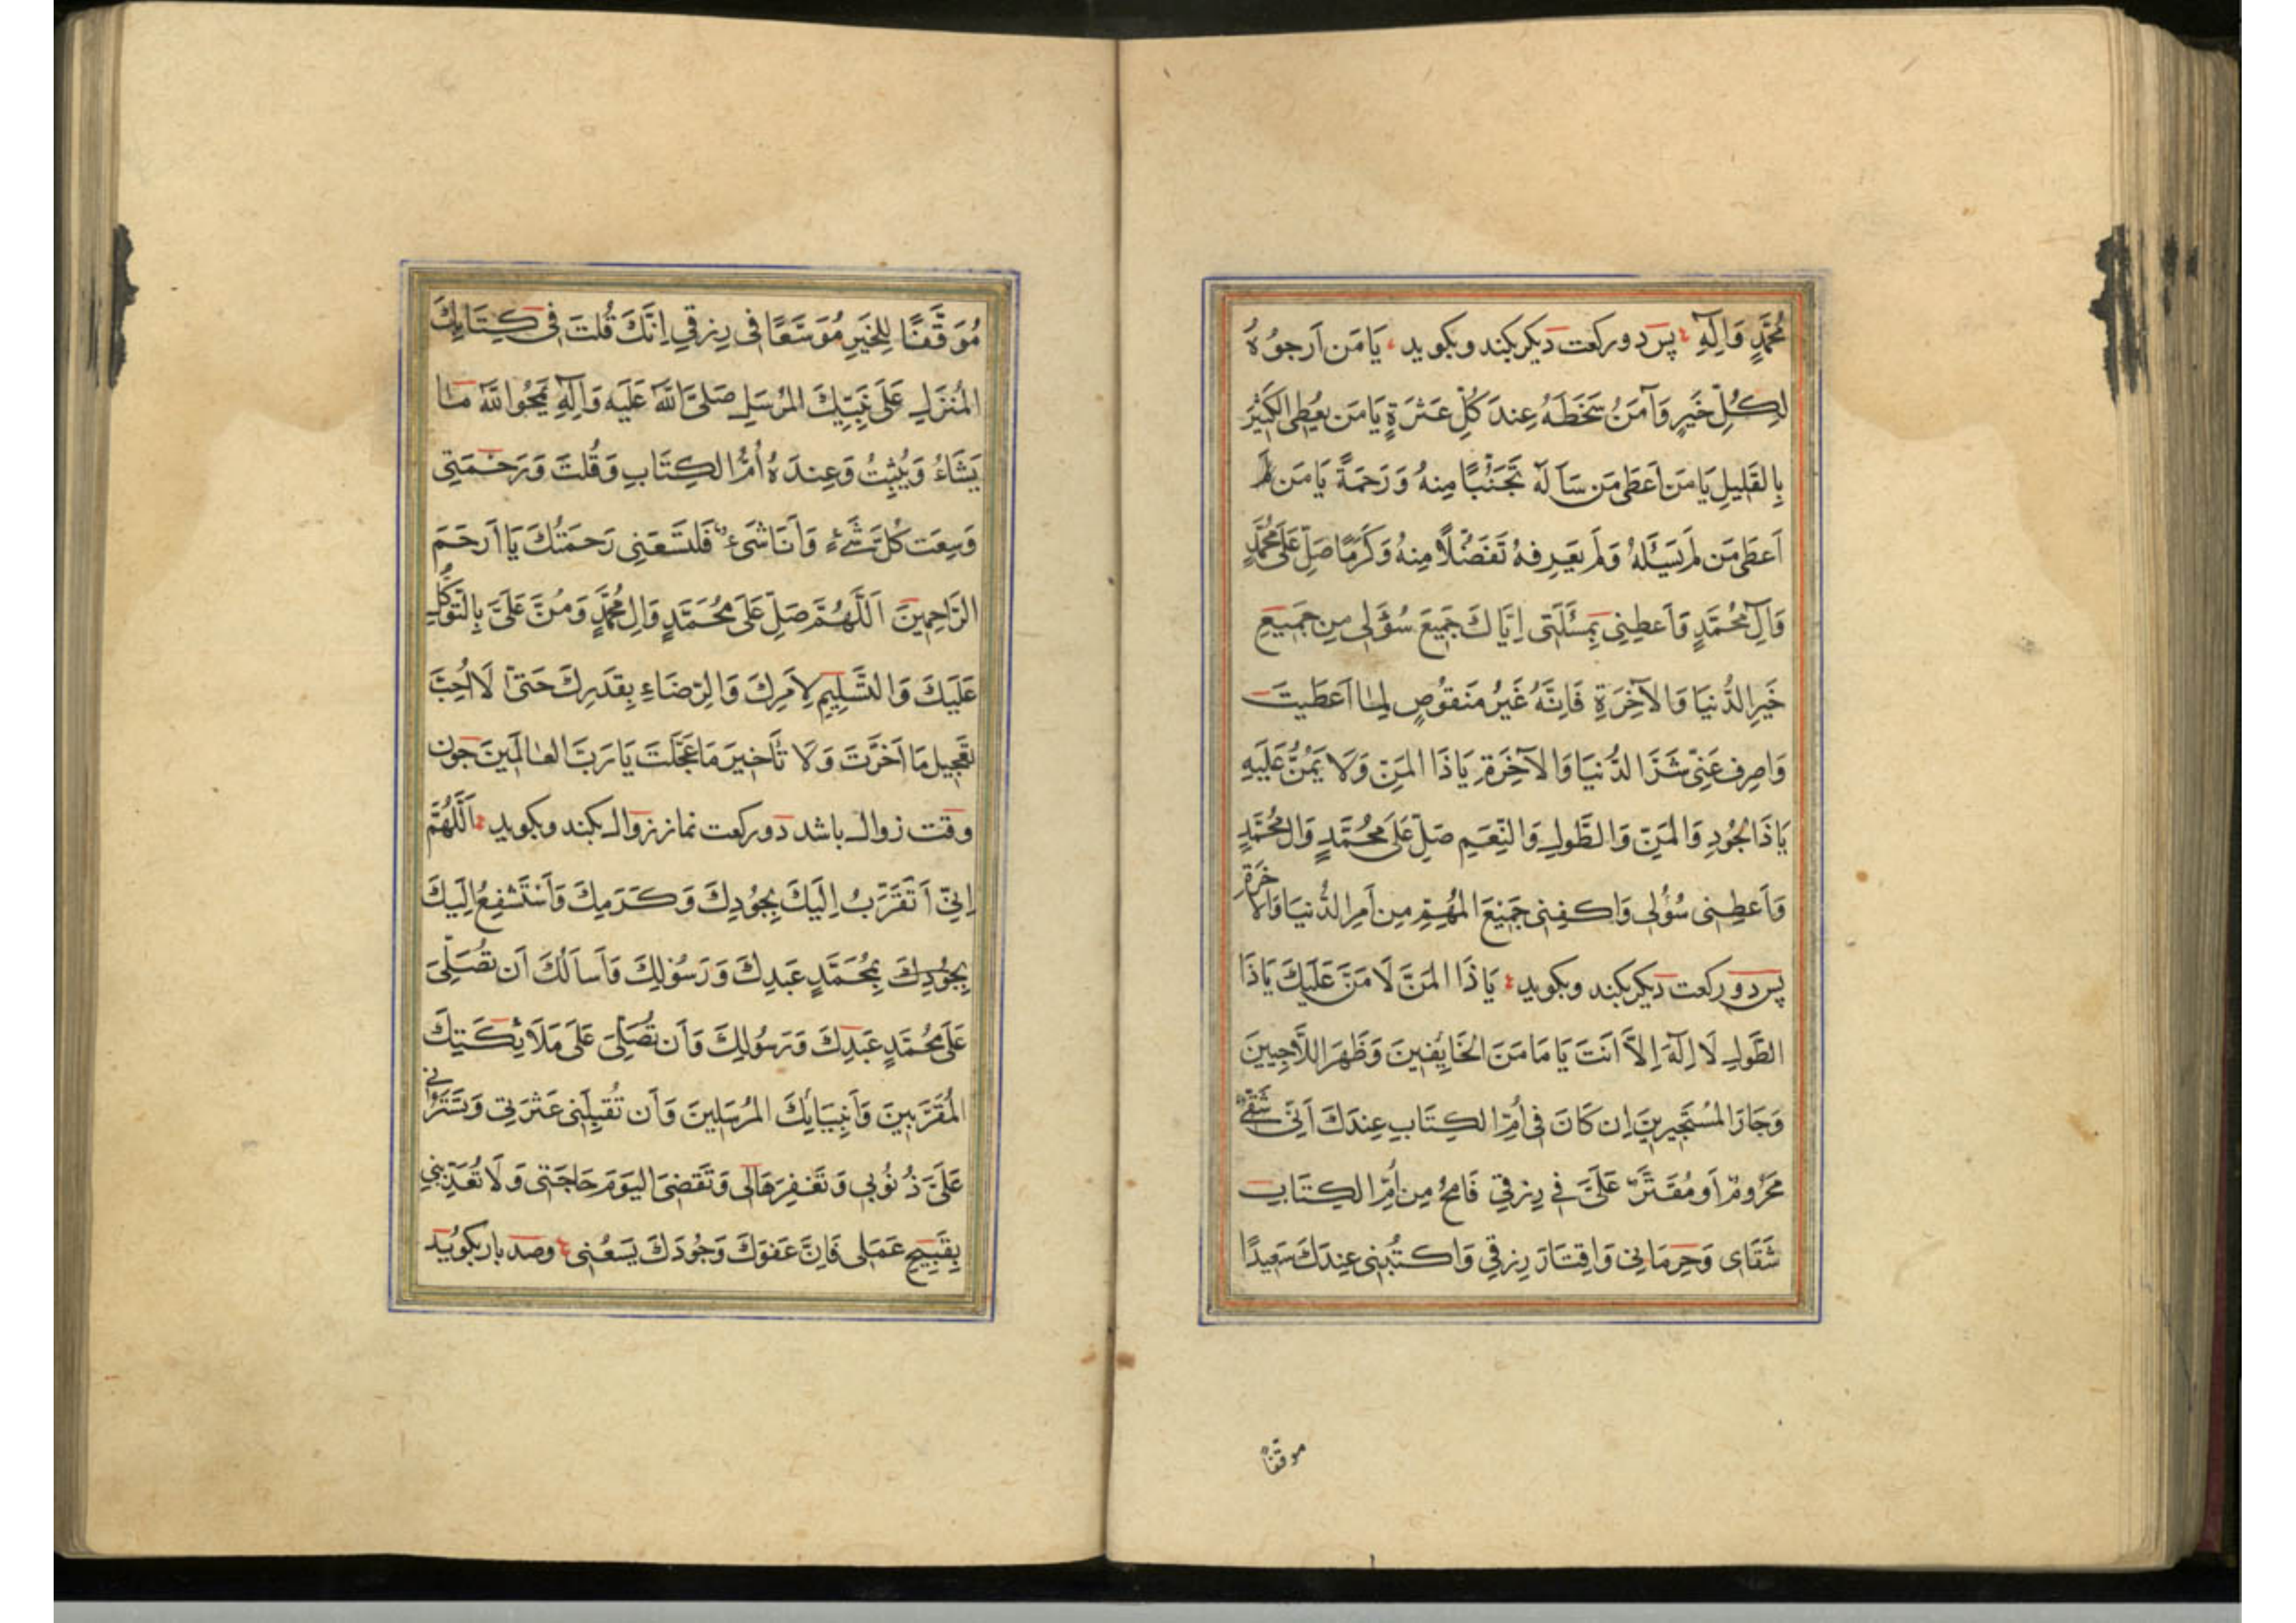 مُحَمَّدٍ وَاٰلِهِ پس دو رکعت دیکر بکند وبکوید یَا مَن اَرجُوهُ
لِکُلِّ خَیرٍ وَآمَنُ سَخَطَهُ عِندَ کُلِّ عَثرَةٍ یَا مَن یُعطِی الکَثیرَ
بِالقَلِیلِ یَا مَن اَعطَی مَن سَاَلَهُ تَحَنُّنًا مِنهُ وَرَحمَةً یَا مَن لَم
اَعطَی مَن لَم یَسئَلهُ وَلَم یَعرِفهُ تَفَضُّلًا مِنهُ وَکَرَمًا صَلِّ عَلَی مُحَمَّدٍ
وَآلِ مُحَمَّدٍ وَاَعطِنِی بِمَسئَلَتِی اِیَّاكَ جَمِیعَ سُؤلِی مِن جَمِیعِ
خَیرِ الدُّنیَا وَالآخِرَةِ فَاِنَّهُ غَیرُ مَنقُوصٍ لِمَا اَعطَیتَ
وَاصرِف عَنِّی شَرَّ الدُّنیَا وَالآخِرَةِ یَا ذَا المَنِّ وَلَا یُمَنُّ عَلَیهِ
یَا ذَا الجُودِ وَالمَنِّ وَالطَّولِ وَالنِّعَمِ صَلِّ عَلَی مُحَمَّدٍ وَالِ مُحَمَّدٍ
وَاَعطِنِی سُؤلِی وَاکفِنِی جَمِیعَ المُهِمِّ مِن اَمرِ الدُّنیَا وَالاخرَةِ
پس دو رکعت دیکر بکند وبکوید یَا ذَا المَنَّ لَا مَنَّ عَلَیكَ یَا ذَا
الطَّولِ لَا اِلٰهَ اِلاَّ اَنتَ یَا مَامَنَ الخَایِفِینَ وَظَهرَ اللاَّجِیینَ
وَجَارَ المُستَجِیرِینَ اِن کَانَ فِی اُمِّ الکِتَابِ عِندَكَ اَنِّی شَقِیٌّ
مَحرُومٌ اَو مُقَتَّرٌ عَلَیَّ فِی رِزقِی فَامحُ مِن اُمِّ الکِتَابِ
شَقَای وَحِرمَانِی وَاقتَارَ رِزقِی وَاکتُبنِی عِندَكَ سَعِیدًا
موفقًا
مُوَفَّقًا لِلخَیرِ مُوَسَّعًا فِی رِزقِی اِنَّكَ قُلتَ فِی کِتَابِكَ
المُنزَلِ عَلَی نَبِیِّكَ المُرسَلِ صَلَّی اللهُ عَلَیهِ وَاٰلِهِ یَمحُوا اللهُ مَا
یَشَاءُ وَیُثبِتُ وَعِندَهُ اُمُّ الکِتَابِ وَقُلتَ وَرَحمَتِی
وَسِعَت کُلَّ شَیءٍ وَاَنَا شَیءٌ فَلتَسَعَنِی رَحمَتُكَ یَا اَرحَمَ
الرَّاحِمِینَ اَللَّهُمَّ صَلِّ عَلَی مُحَمَّدٍ وَالِ مُحَمَّدٍ وَمُنَّ عَلَیَّ بِالتَّوَکُّلِ
عَلَیكَ وَالتَّسلِیمِ لِاَمرِكَ وَالرِّضَاءِ بِقَدَرِكَ حَتّٰی لَا اُحِبَّ
تَعجِیلَ مَا اَخَّرتَ وَلَا تَأخِیرَ مَا عَجَّلتَ یَا رَبَّ العَالَمِینَ جون
وقت زوال باشد دو رکعت نماز زوال بکند وبکوید اَللَّهُمَّ
اِنِّی اَتَقَرَّبُ اِلَیكَ بِجُودِكَ وَکَرَمِكَ وَاَستَشفِعُ اِلَیكَ
بِجُودِكَ بِمُحَمَّدٍ عَبدِكَ وَرَسُولِكَ وَاَساَلُكَ اَن تُصَلِّیَ
عَلَی مُحَمَّدٍ عَبدِكَ وَرَسُولِكَ وَاَن تُصَلِّیَ عَلَی مَلَائِکَتِكَ
المُقَرَّبِینَ وَاَنبِیَائِكَ المُرسَلِینَ وَاَن تُقِیلَنِی عَثرَتِی وَتَستُرَ
عَلَیَّ ذُنُوبِی وَتَغفِرَهَا لِی وَتَقضِیَ الیَومَ حَاجَتِی وَلَا تُعَذِّبنِی
بِقَبِیحِ عَمَلِی فَاِنَّ عَفوَكَ وَجُودَكَ یَسَعُنِی وصد بار بکوید